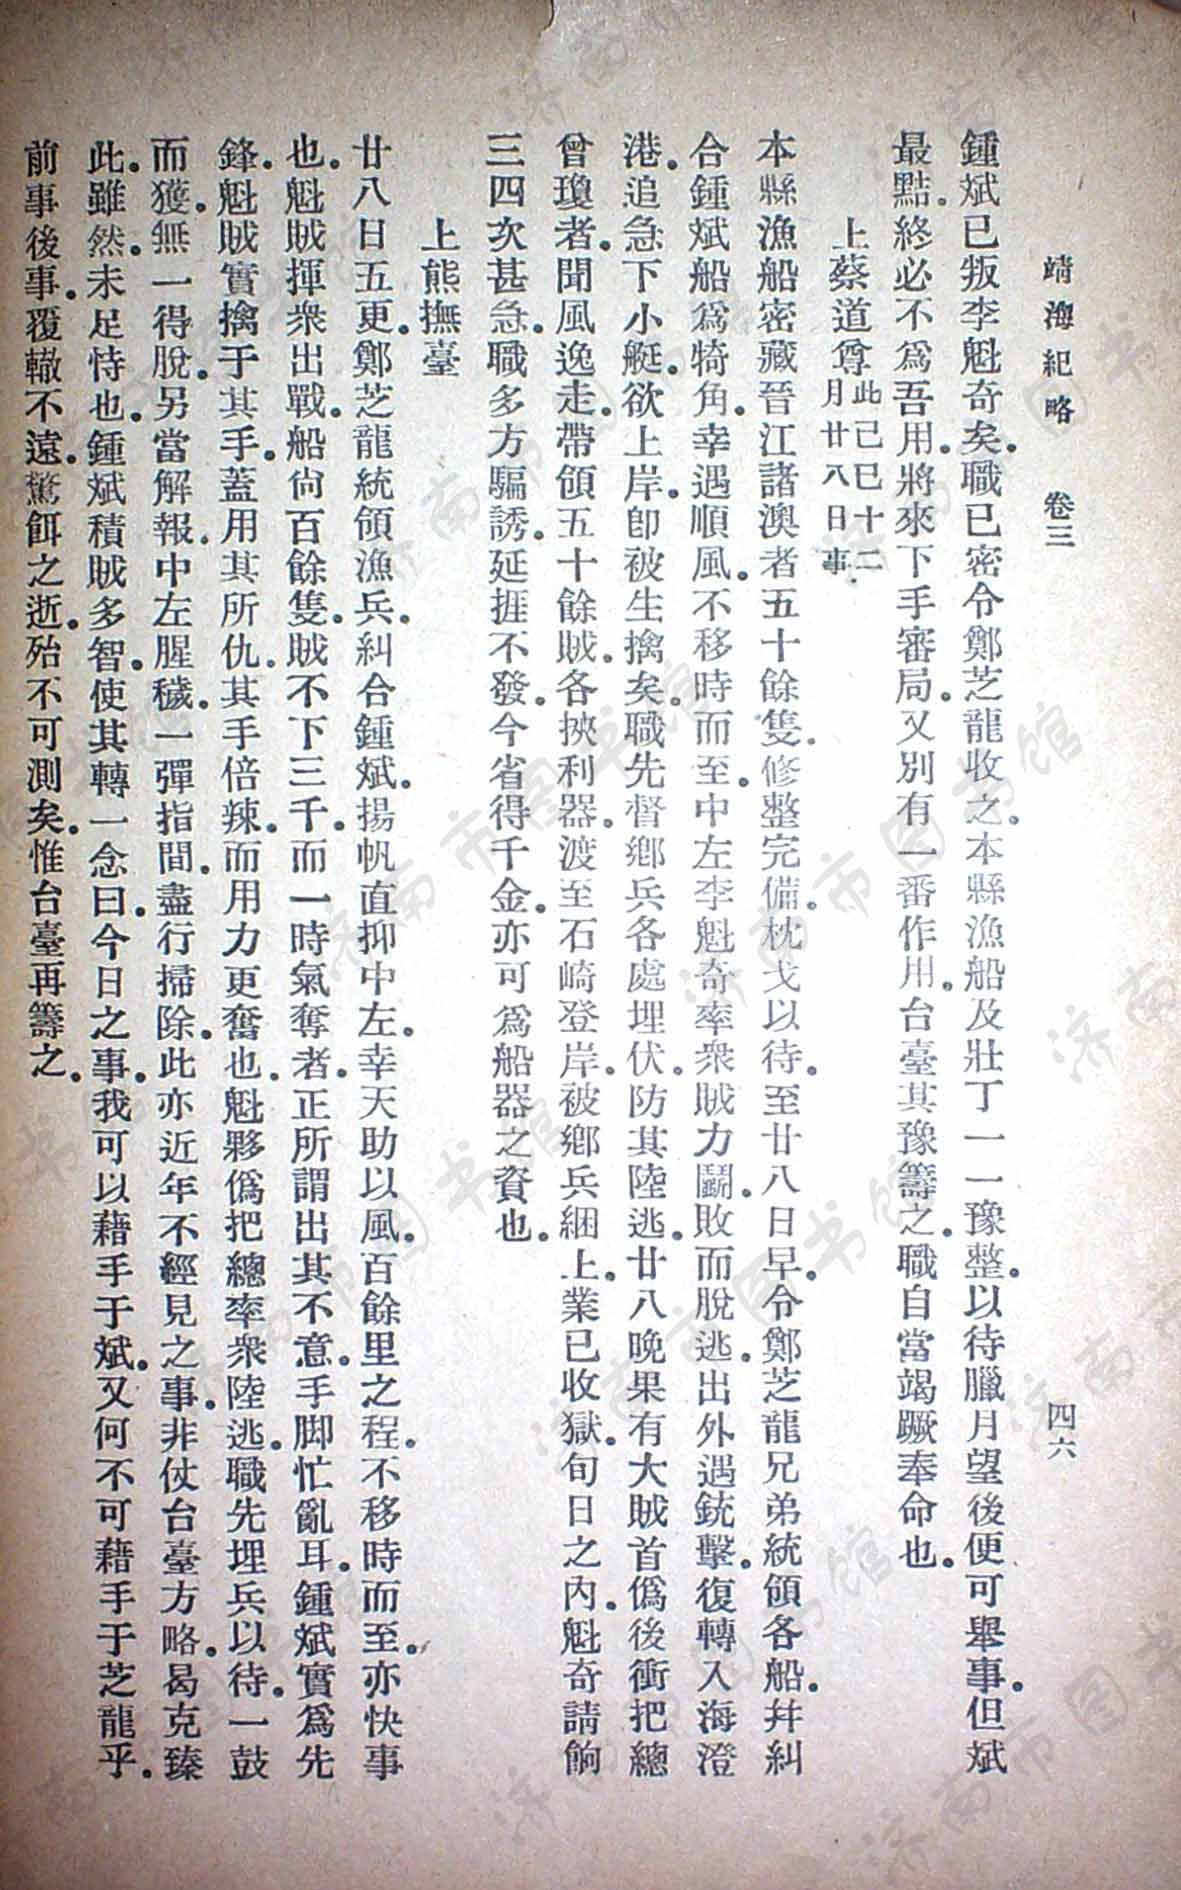 靖海紀略　卷三　四六
鍾斌已叛李魁奇矣。職已密令鄭芝龍收之。本縣漁船及壯丁一一豫整。以待臘月望後便可舉事。但斌
最黠。終必不爲吾用。將來下手審局。又別有一番作用。台臺其豫籌之。職自當竭蹶奉命也。
上蔡道尊此己巳十二月廿八日事。
本縣漁船密藏晉江諸澳者五十餘隻。修整完備。枕戈以待。至廿八日早。令鄭芝龍兄弟統領各船。幷糾
合鍾斌船爲犄角。幸遇順風。不移時而至。中左李魁奇率衆賊力鬭。敗而脫逃。出外遇銃擊。復轉入海澄
港。追急下小艇。欲上岸。卽被生擒矣。職先督鄕兵各處埋伏。防其陸逃。廿八晚果有大賊首僞後衝把總
曾瓊者。聞風逸走。帶領五十餘賊。各挾利器。渡至石崎登岸。被鄕兵綑上。業已收獄。旬日之內。魁奇請餉
三四次甚急。職多方騙誘。延捱不發。今省得千金。亦可爲船器之資也。
上熊撫臺
廿八日五更。鄭芝龍統領漁兵。糾合鍾斌。揚帆直抑中左。幸天助以風。百餘里之程。不移時而至。亦快事
也。魁賊揮衆出戰。船尙百餘隻。賊不下三千。而一時氣奪者。正所謂出其不意。手脚忙亂耳。鍾斌實爲先
鋒。魁賊實擒于其手。蓋用其所仇。其手倍辣。而用力更奮也。魁夥僞把總率衆陸逃。職先埋兵以待。一鼓
而獲。無一得脫。另當解報。中左腥穢。一彈指間。盡行掃除。此亦近年不經見之事。非仗台臺方略。曷克臻
此。雖然。未足恃也。鍾斌積賊多智。使其轉一念曰。今日之事。我可以藉手于斌。又何不可藉手于芝龍乎。
前事後事。覆轍不遠。驚餌之逝。殆不可測矣。惟台臺再籌之。